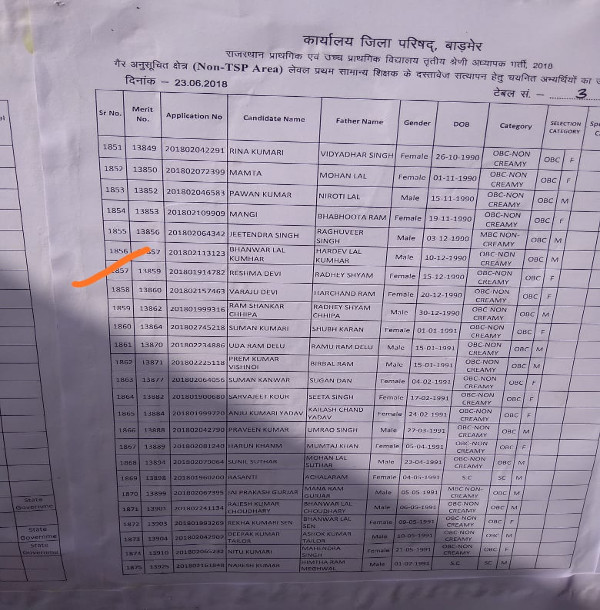 कार्यालय जिला परिषद्, बाड़मेर
राजस्थान प्राथमिक एवं उच्च प्राथमिक विद्यालय तृतीय श्रेणी अध्यापक भर्ती, 2018
गैर अनुसूचित क्षेत्र (Non-TSP Area) लेवल प्रथम सामान्य शिक्षक के दस्तावेज सत्यापन हेतु चयनित अभ्यर्थियों का
दिनांक - 23.06.2018
टेबल सं. - 3
Sr No. Merit No. Application No Candidate Name Father Name Gender DOB Category SELECTION CATEGORY
1851 13849 201802042291 RINA KUMARI VIDYADHAR SINGH Female 26-10-1990 OBC-NON CREAMY OBC F
1852 13850 201802072399 MAMTA MOHAN LAL Female 01-11-1990 OBC-NON CREAMY OBC F
1853 13852 201802046583 PAWAN KUMAR NIROTI LAL Male 15-11-1990 OBC-NON CREAMY OBC M
1854 13853 201802109909 MANGI BHABHOOTA RAM Female 19-11-1990 OBC-NON CREAMY OBC F
1855 13856 201802064342 JEETENDRA SINGH RAGHUVEER SINGH Male 03-12-1990 MBC NON-CREAMY OBC M
1856 201802113123 BHANWAR LAL KUMHAR HARDEV LAL KUMHAR Male 10-12-1990 OBC-NON CREAMY OBC M
1857 13859 201801914782 RESHMA DEVI RADHEY SHYAM Female 15-12-1990 OBC-NON CREAMY OBC F
1858 13860 201802157463 VARAJU DEVI HARCHAND RAM Female 20-12-1990 OBC-NON CREAMY OBC F
1859 13862 201801999316 RAM SHANKAR CHHIPA RADHEY SHYAM CHHIPA Male 30-12-1990 OBC-NON CREAMY OBC M
1860 13864 201802745218 SUMAN KUMARI SHUBH KARAN Female 01-01-1991 OBC-NON CREAMY OBC F
1861 13870 201802234886 UDA RAM DELU RAMU RAM DELU Male 15-01-1991 OBC-NON CREAMY OBC M
1862 13871 201802225118 PREM KUMAR VISHNOI BIRBAL RAM Male 15-01-1991 OBC-NON CREAMY OBC M
1863 13877 201802064056 SUMAN KANWAR SUGAN DAN Female 04-02-1991 OBC-NON CREAMY OBC F
1864 13882 201801900680 SARVAJEET KOUR SEETA SINGH Female 17-02-1991 OBC-NON CREAMY OBC F
1865 13884 201801999720 ANJU KUMARI YADAV KAILASH CHAND YADAV Female 24-02-1991 OBC-NON CREAMY OBC F
1866 13888 201802042790 PRAVEEN KUMAR UMRAO SINGH Male 27-03-1991 OBC-NON CREAMY OBC M
1867 13889 201802081240 HARUN KHANM MUMTAJ KHAN Female 05-04-1991 OBC-NON CREAMY OBC F
1868 13894 SUNIL SUTHAR MOHAN LAL SUTHAR Male 23-04-1991 OBC-NON CREAMY OBC M
1869 13898 HASANTI ACHALARAM Female 04-05-1991 S.C SC M
1870 13899 JAI PRAKASH GURJAR MANA RAM GURJAR Male 05-05-1991 MBC NON-CREAMY OBC M
1871 13901 201802241134 RAJESH KUMAR CHOUDHARY BHANWAR LAL CHOUDHARY Male OBC-NON CREAMY OBC M
1872 13903 REKHA KUMARI SEN BHANWAR LAL SEN Female OBC-NON CREAMY OBC F
1873 13904 DEEPAK KUMAR TAILOR ASHOK KUMAR TAILOR Male OBC-NON CREAMY OBC M
NITU KUMARI MAHENDRA SINGH Female 21-05-1991 OBC-NON CREAMY OBC F
1875 HIMTHA RAM MEGHWAL Male S.C SC M
State
Governme
State
Governme
State